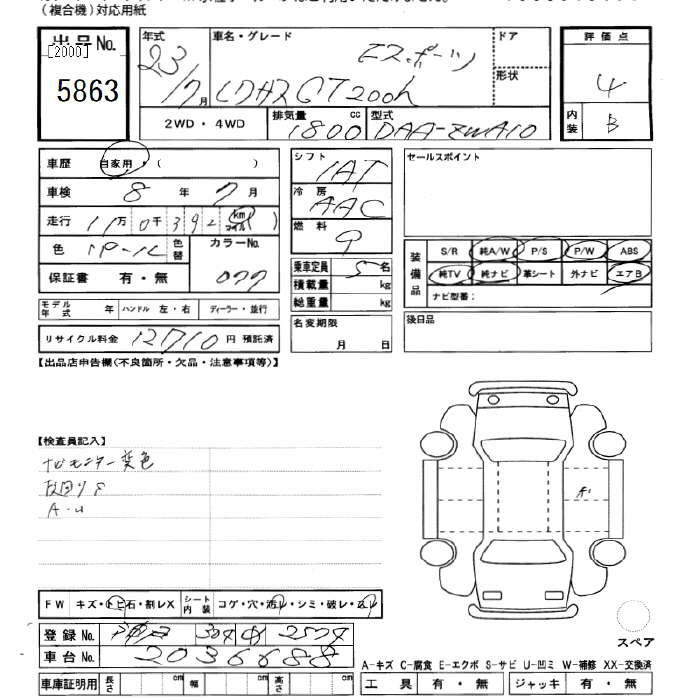 (複合機)対応用紙
出品No.
[2000]
5863
年式 23/7月
車名・グレード
レクサスCT200h
ドア
形状
評価点 4
内装 B
2WD・4WD
排気量 1800 cc
型式 DAA-ZWA10
車歴 自家用・( )
車検 8年7月
走行 11万0千392 km マイル ( )
色 パール 色替
カラーNo. 077
保証書 有・無
モデル年式 年 ハンドル 左・右 ディーラー・並行
リサイクル料金 12710円 預託済
シフト IAT
冷房 AAC
燃料
乗車定員 5名
積載量 kg
総重量 kg
名変期限
月 日
セールスポイント
装備品
S/R 純A/W P/S P/W ABS
純TV 純ナビ 革シート 外ナビ エアB
ナビ型番:
後日品
【出品店申告欄(不良箇所・欠品・注意事項等)】
【検査員記入】
ナビモニター変色
A・U
FW キズ・トビ石・割レX
シート内装 コゲ・穴・汚レ・シミ・破レ・スレ
登録No. 神戸 304
車台No. 2036688
車庫証明用 長さ cm 幅 cm 高さ cm
スペア
A-キズ C-腐食 E-エクボ S-サビ U-凹ミ W-補修 XX-交換済
工具 有・無 ジャッキ 有・無